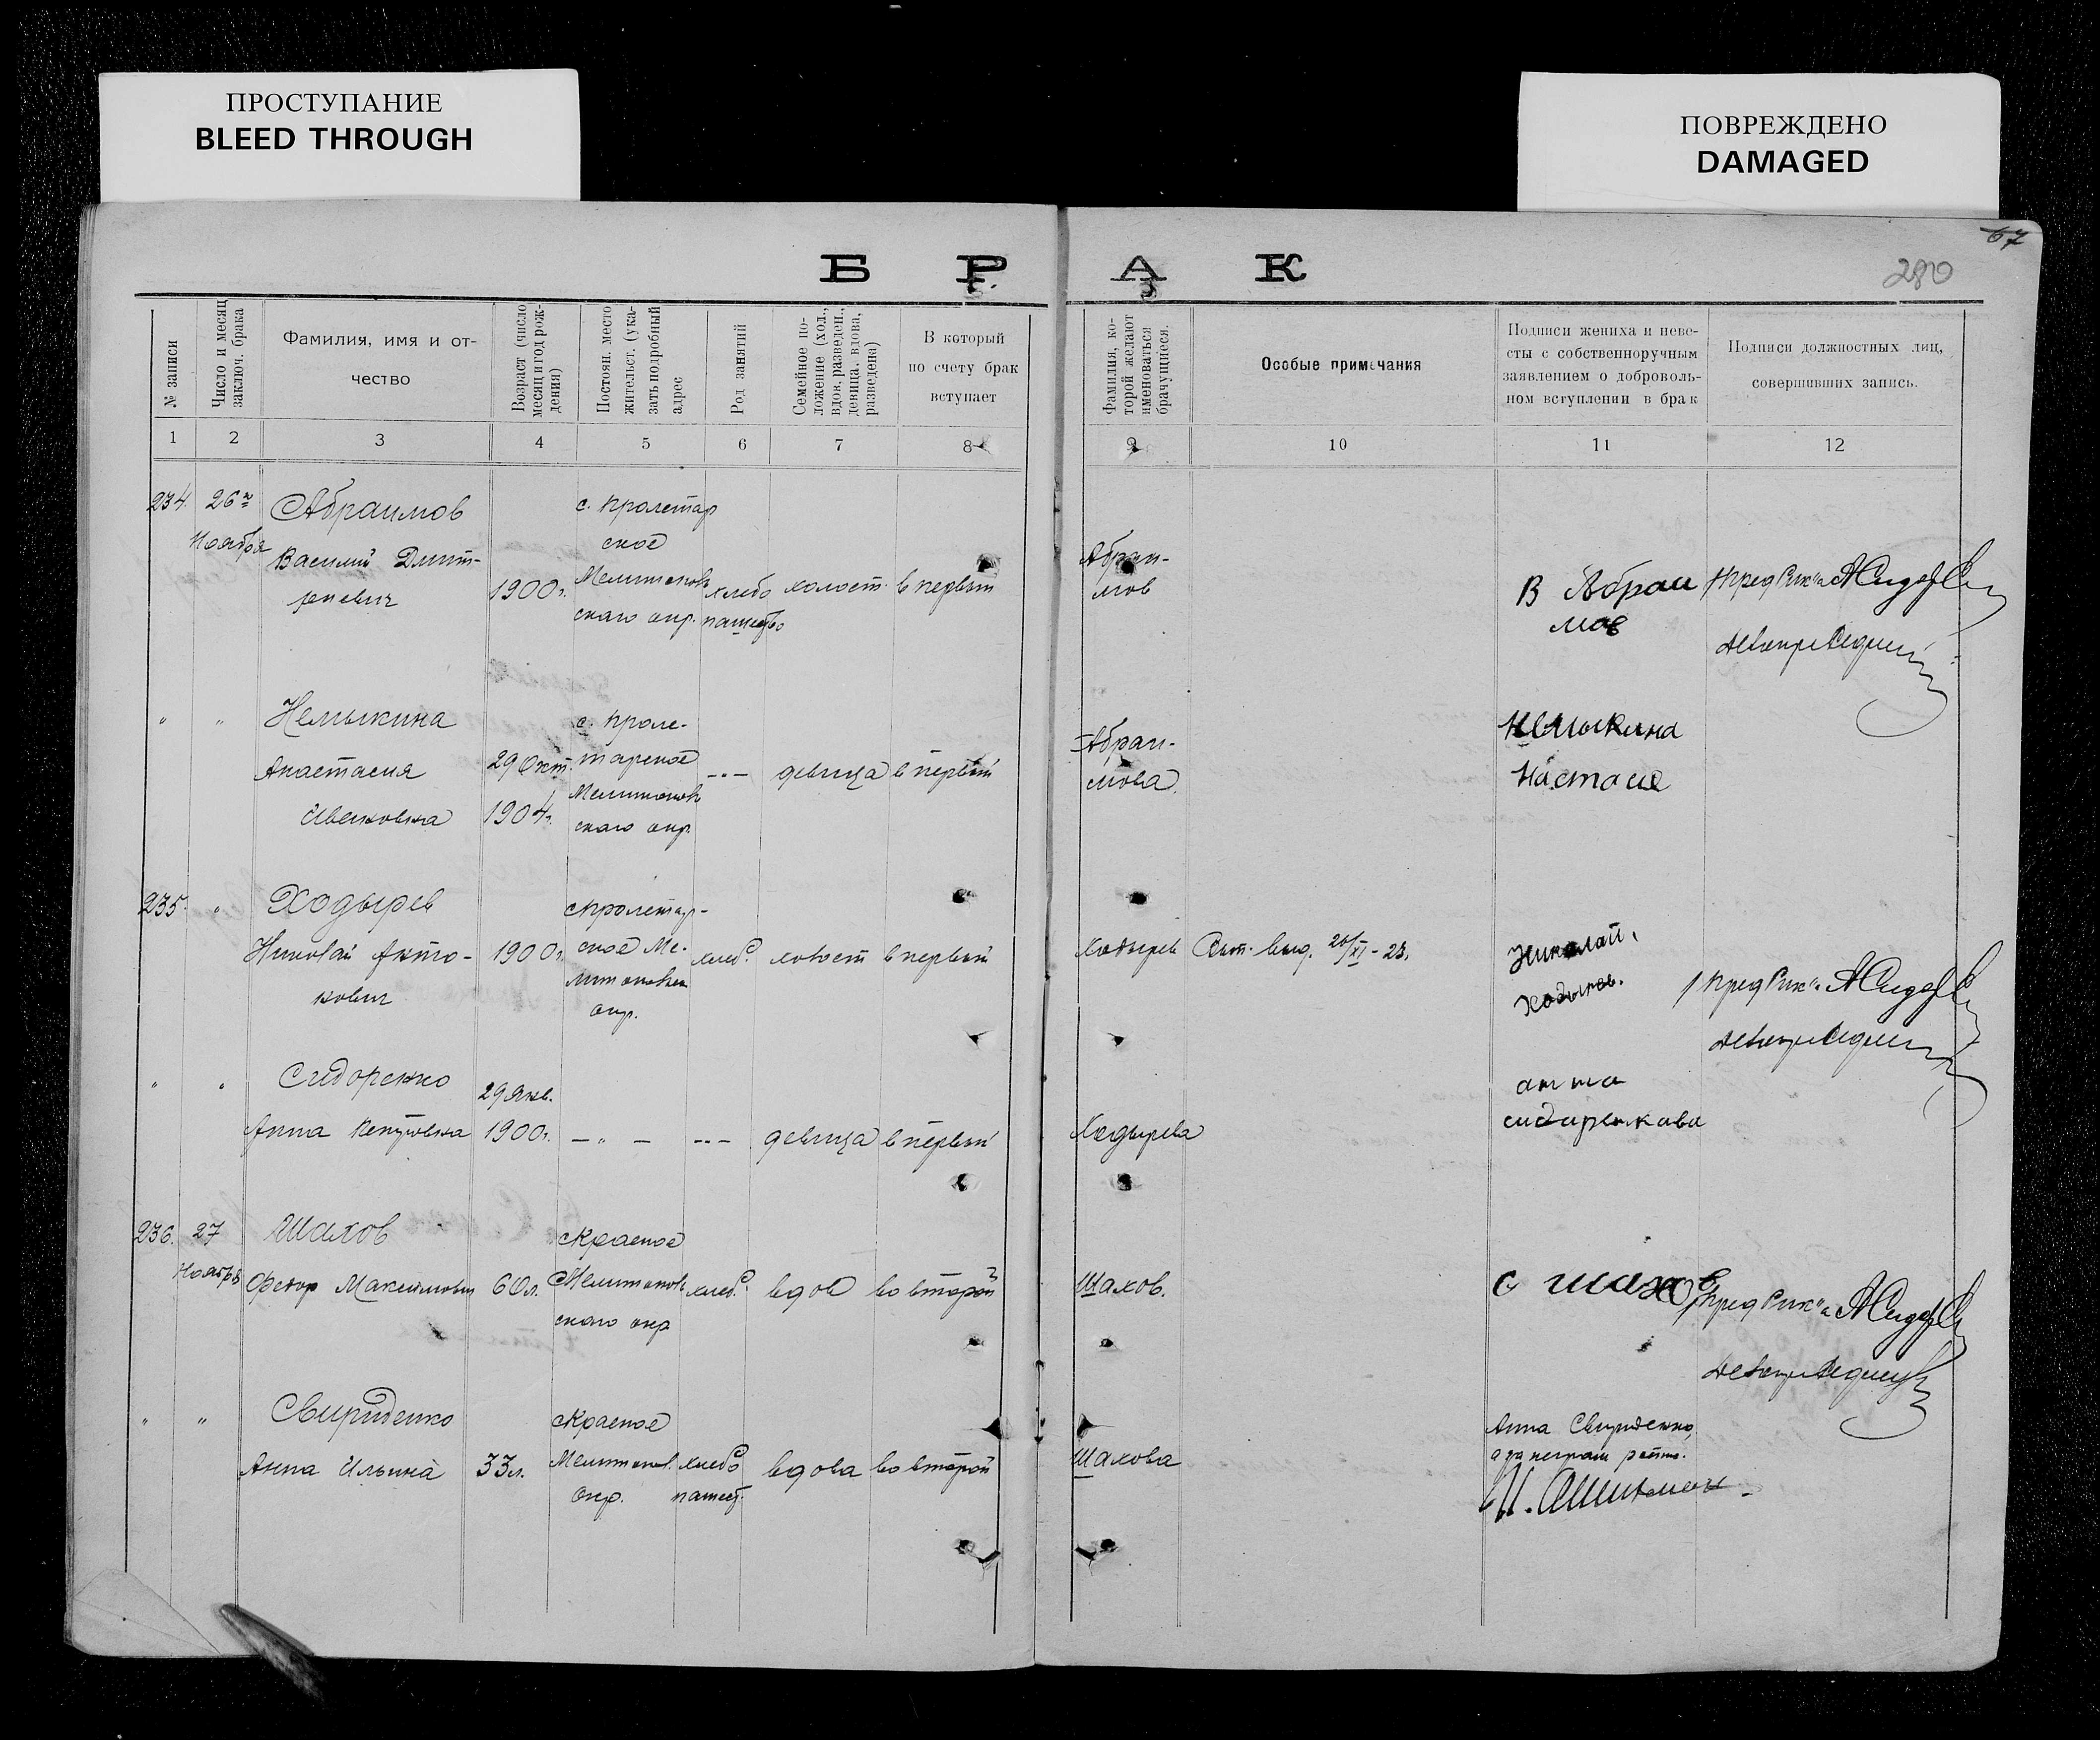 ПРОСТУПАНИЕ
BLEED THROUGH
ПОВРЕЖДЕНО
DAMAGED
67
280
Б Р А К
№ записи
Число и месяц
заключ. брака
Фамилия, имя и от-
чество
Возраст (число
месяц и год рож-
дения)
Постоян. место
жительст. (ука-
зать подробный
адрес
Род занятий
Семейное по-
ложение (хол.,
вдов, разведен.,
девица, вдова,
разведена)
В который
по счету брак
вступает
Фамилия, ко-
торой желают
именоваться
брачущиеся.
Особые примечания
Подписи жениха и неве-
сты с собственноручным
заявлением о доброволь-
ном вступлении в брак
Подписи должностных лиц,
совершивших запись.
1 2 3 4 5 6 7 8 9 10 11 12
234. 26го
Ноября
Абраимов
Василий Дмит-
риевич
1900г.
с. Пролетар
ское
Мелитополь
скаго окр.
хлебо
пашество
холост
в первый
Абраи-
мов
В Абраи
мов
Пред Рик"а
" "
Немыкина
Анастасия
Ивановна
29 Окт.
1904г.
с. Проле-
тарское
Мелитополь
скаго окр.
-"-
девица
в первый
Абраи-
мова
Немыкина
Настася
235. "
Ходырев
Николай Анто-
нович
1900г.
с Пролетар-
ское Ме-
литопольск
окр.
хлеб.
холост
в первый
Ходырев
Николай.
Ходырев.
Пред Рик"а
" "
Сидоренко
Анна
29 Янв.
1900г.
- " -
-"-
девица
в первый
Ходырева
анна
сидаренкава
236. 27
Ноября
Шахов
Федор Максимович
60л.
с Красное
Мелитополь
скаго окр
хлеб.
вдов
во второй
Шахов.
Пред Рик"а
" "
Свириденко
Анна Ильина
33л.
с Красное
Мелитопол.
Окр.
хлебо
пашест.
вдова
во второй
Шахова
Анна Свириденко,